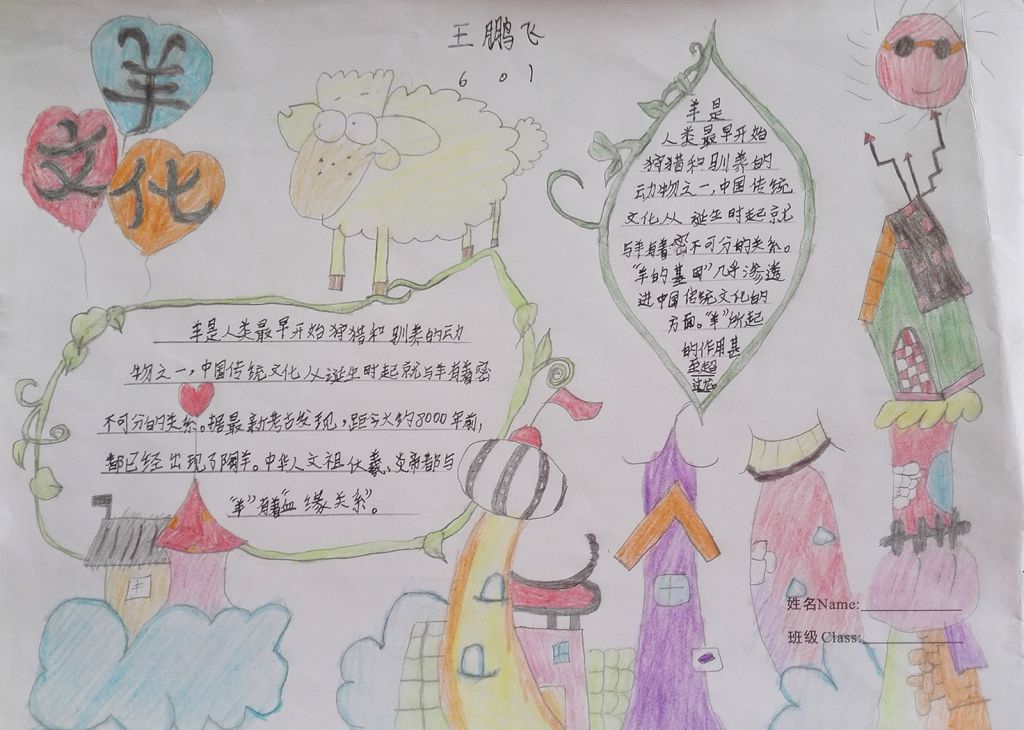 羊
文
化
王鹏飞
601
羊是
人类最早开始
狩猎和驯养的
动物之一,中国传统
文化从诞生时起就
与羊有着密不可分的关系。
“羊的基因”几乎渗透
进中国传统文化的
方面。“羊”所起
的作用甚
至超
过龙。
羊是人类最早开始狩猎和驯养的动
物之一,中国传统文化从诞生时起就与羊有着密
不可分的关系。据最新考古发现,距今大约8000年前,
都已经出现了陶羊。中华人文祖伏羲、炎帝都与
“羊”有着“血缘关系”。
姓名Name:
班级Class: